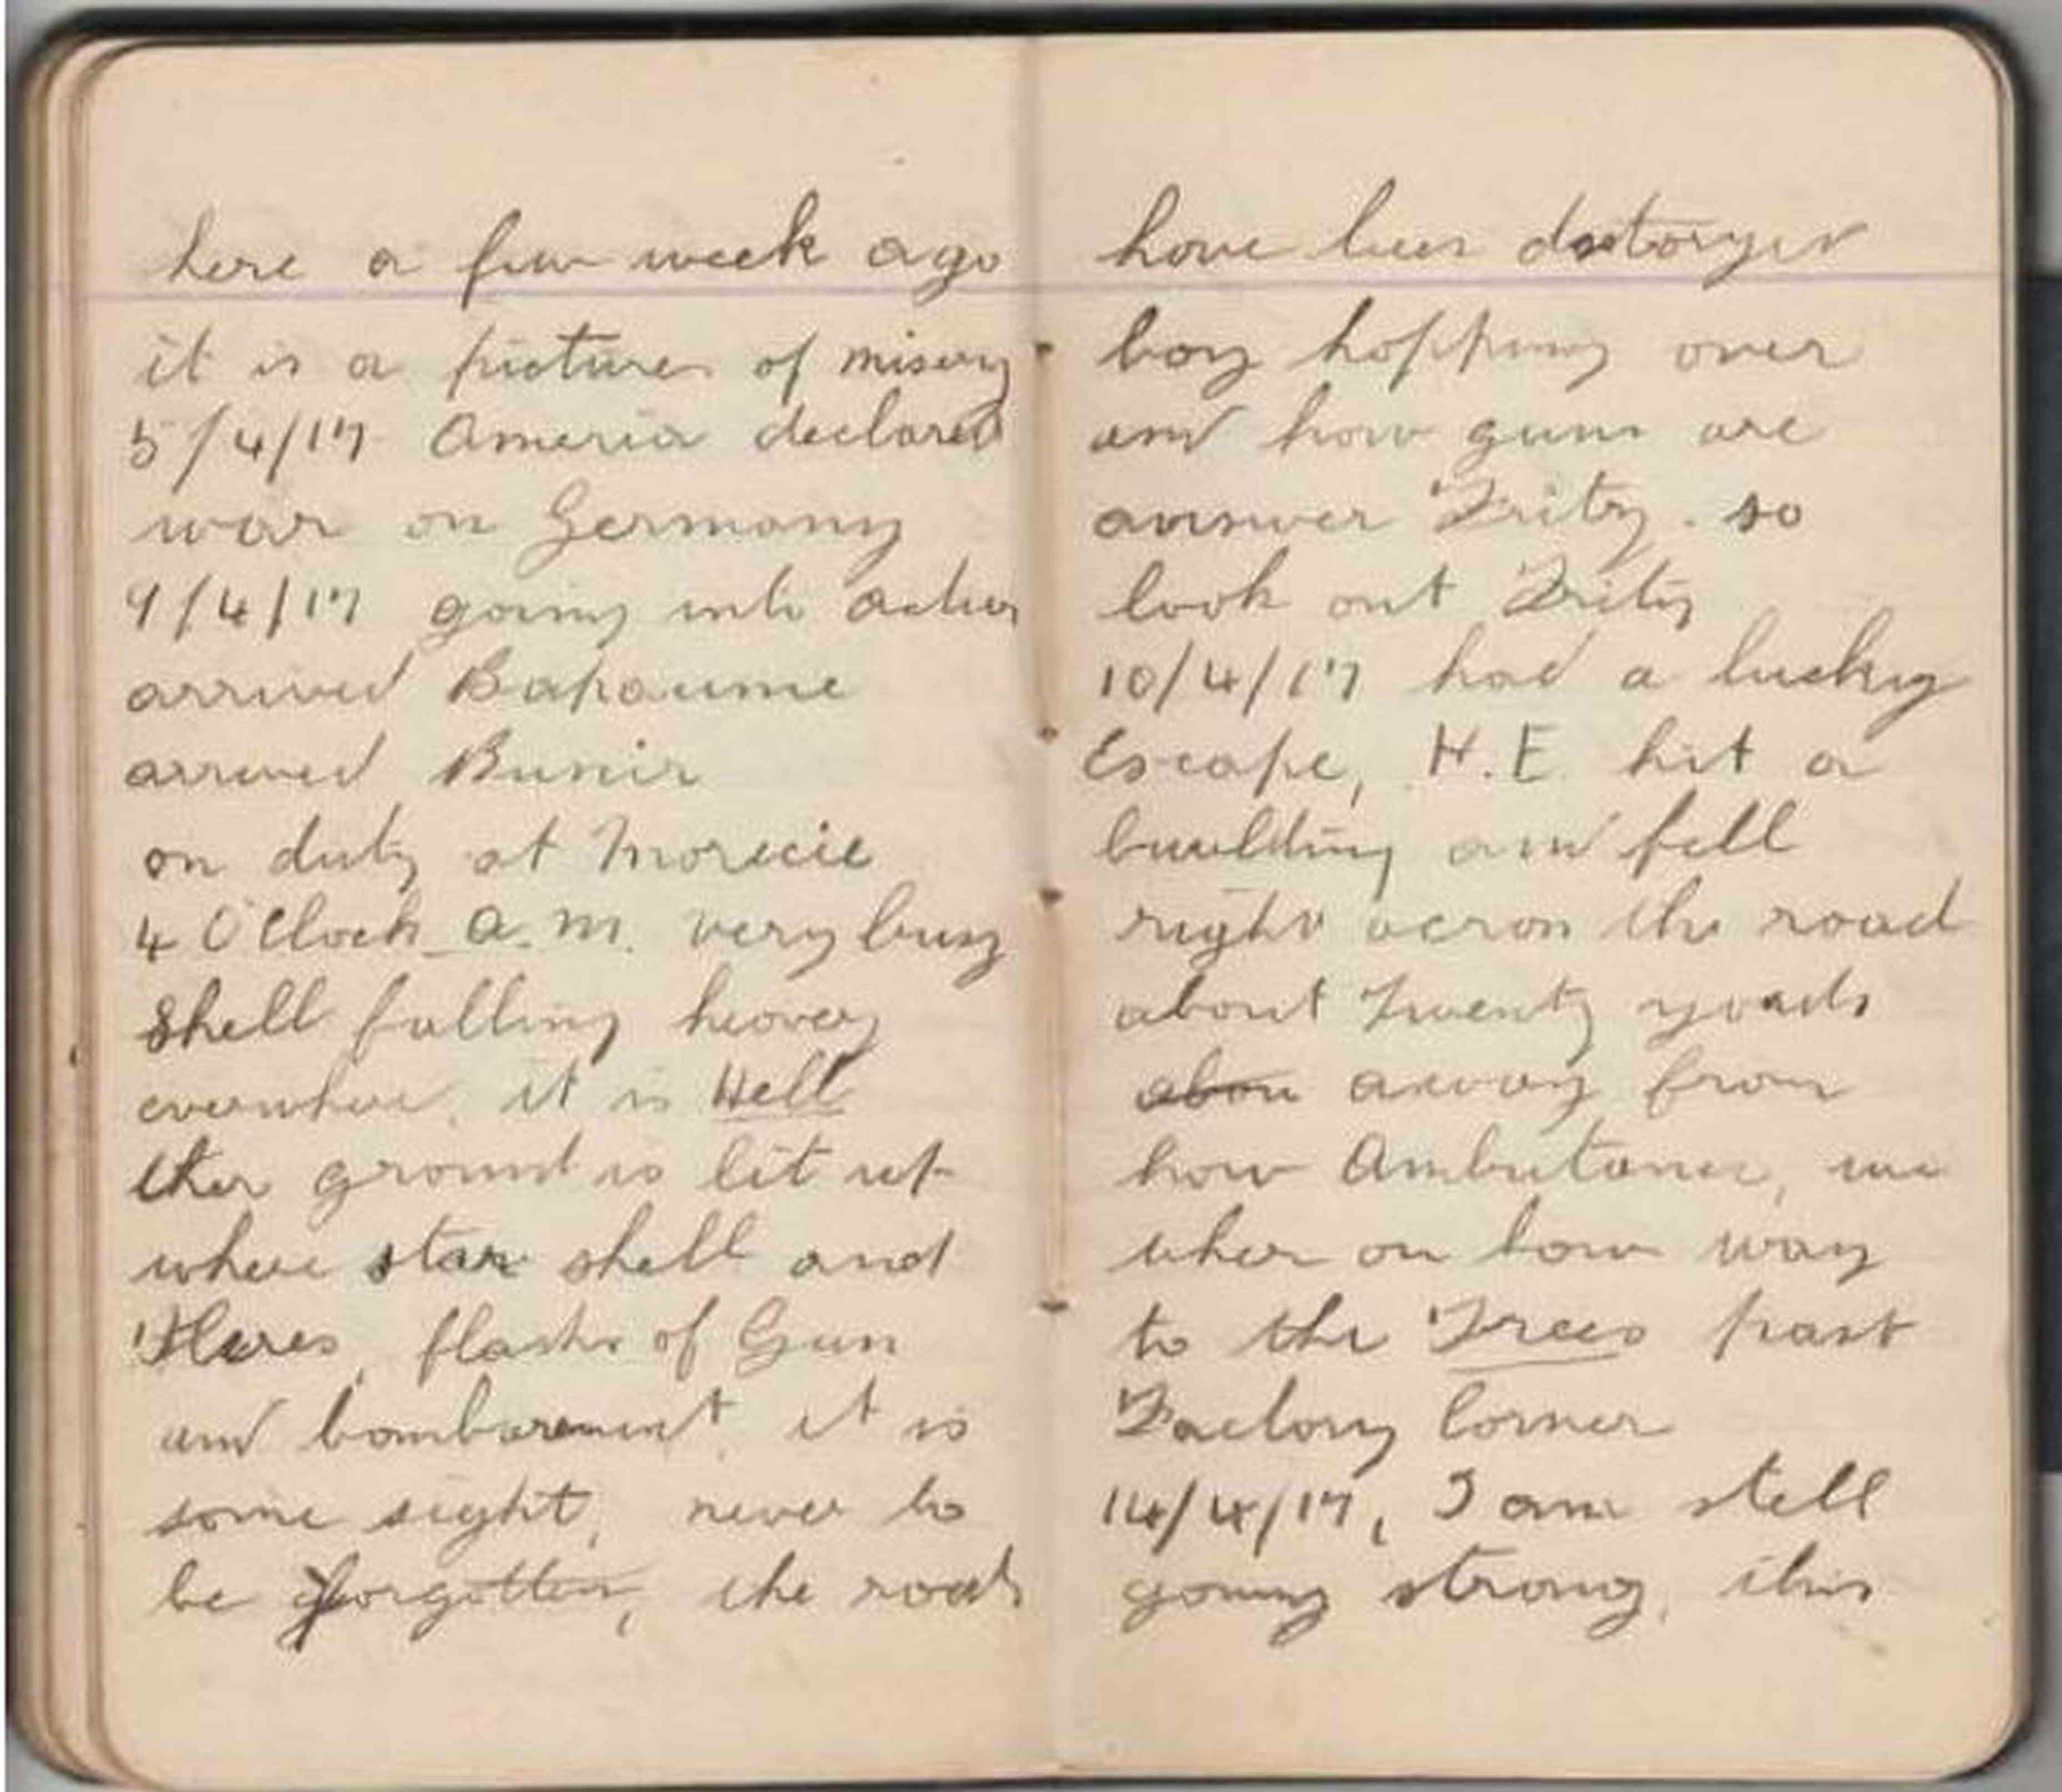 here a few week ago
it is a picture of misery
5/4/17 America declared
war on Germany
9/4/17 going into action
arrived Bapaume
arrived Bunir
on duty at Morecie
4 O'Clock a.m. very busy
shell falling heavey
everwhere, it is Hell
ther ground is lit up
where star shell and
Flares, flashs of Gun
and bombarement it is
some sight, never to
be forgotten, the roads
have been dostoryed
boy hopping over
and how guns are
answer Fritz. so
look out Fritz
10/4/17 had a lucky
Escape, H.E. hit a
buulding and fell
right across the road
about Twenty yoads
abou away from
how Ambutance, we
wher on how way
to the Trees past
Factory Corner
14/4/17, I am still
going strong, this